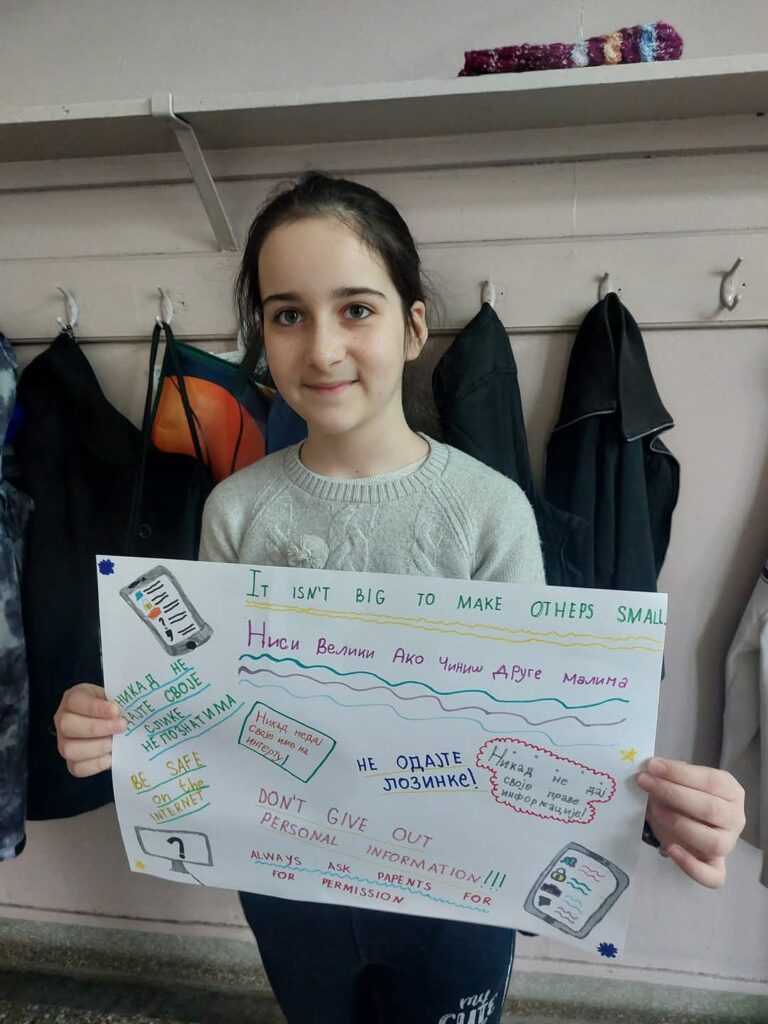 IT ISN'T BIG TO MAKE OTHEPS SMALL.
Ниси Велики Ако Чиниш Друге малима
НИКАД НЕ
ДАЈТЕ СВОЈЕ
СЛИКЕ
НЕПОЗНАТИМА
Никад недај
Своје име на
интерту!
НЕ ОДАЈТЕ
ЛОЗИНКЕ!
Никад не дај
своје праве
информације!
BE SAFE
on the
INTERNET
DON'T GIVE OUT
PERSONAL INFORMATION!!!
ALWAYS ASK PAPENTS FOR
FOR PERMISSION
?
?
my
cute